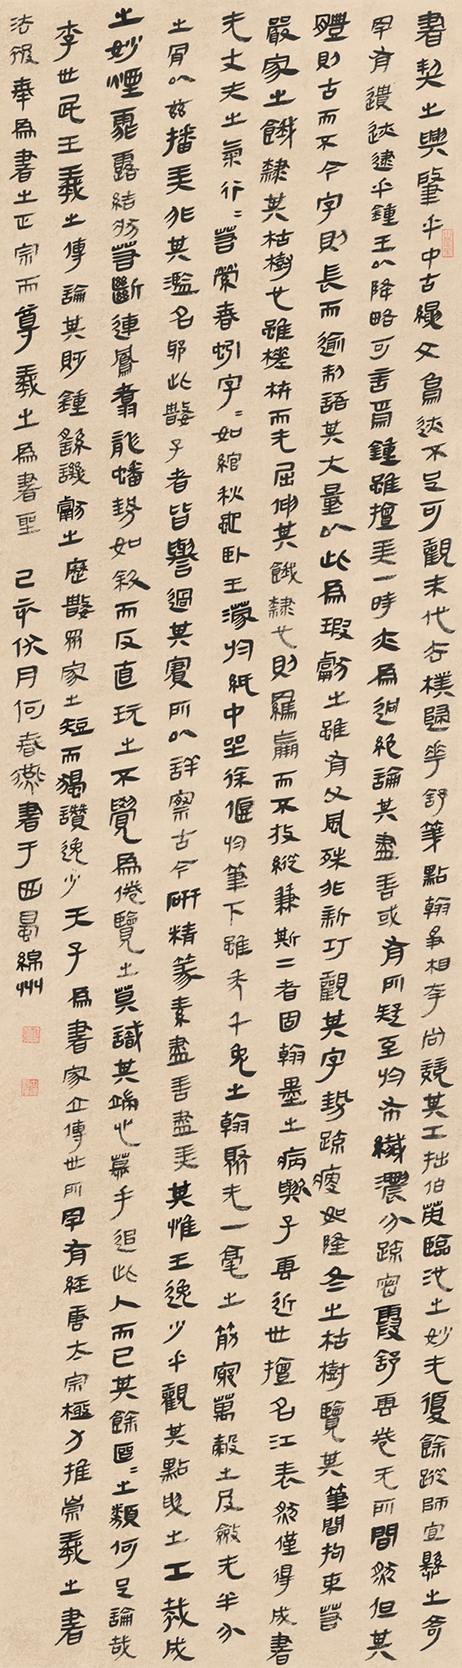 書契之興肇乎中古繩文鳥迹不足可觀末代去樸歸華舒箋點翰爭相夸尚競其工拙伯英臨池之妙无復餘蹤師宜懸之奇
罕有遺迹逮乎鍾王以降略可言焉鍾雖擅美一時亦為迥絕論其盡善或有所疑至於布纖濃分疏密霞舒雲卷无所間然但其
體則古而不今字則長而逾制語其大量以此為瑕獻之雖有父風殊非新巧觀其字勢疏瘦如隆冬之枯樹覽其筆間拘束若
嚴家之餓隸其枯樹也雖槎枿而无屈伸其餓隸也則羈羸而不放縱兼斯二者固翰墨之病歟子雲近世擅名江表然僅得成書
无丈夫之氣行〻若縈春蚓字〻如綰秋蛇臥王濛於紙中坐徐偃於筆下雖禿千兔之翰聚无一毫之筋窮萬穀之皮斂无半分
之骨以茲播美非其濫名邪此數子者皆譽過其實所以詳察古今研精篆素盡善盡美其惟王逸少乎觀其點曳之工裁成
之妙煙霏露結狀若斷連鳳翥龍蟠勢如斜而反直玩之不覺為倦覽之莫識其端心慕手追此人而已其餘區〻之類何足論哉
李世民王羲之傳論其貶鍾繇譏獻之歷數眾家之短而獨讚逸少天子為書家立傳世所罕有經唐太宗極力推崇羲之書
法被奉為書之正宗而尊羲之為書聖 己亥伏月何春書于西蜀綿州